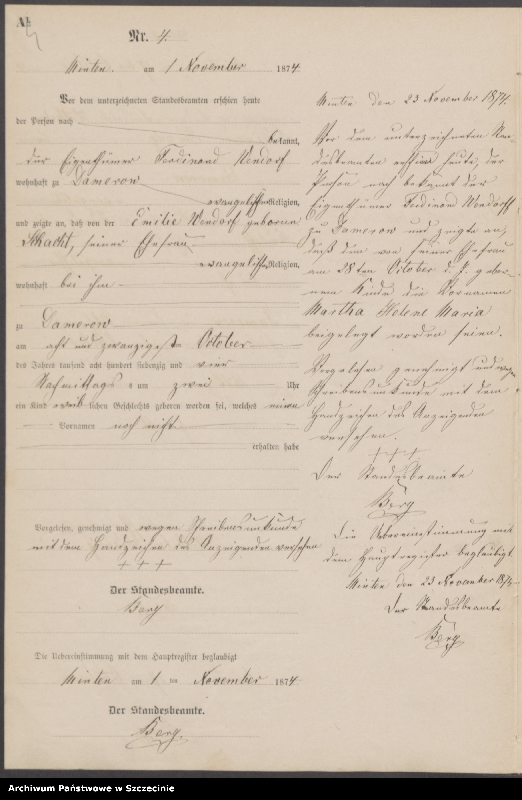 A
4
Nr. 4.
Minten am 1 November 1874
Vor dem unterzeichneten Standesbeamten erschien heute
der Person nach
bekannt,
der Eigenthümer Ferdinand Wendorf
wohnhaft zu Dameron
evangelischer Religion,
und zeigte an, daß von der Emilie Wendorf geborene
Schacht, seiner Ehefrau
evangelischer Religion,
wohnhaft bei ihm
zu Dameron
am acht und zwanzigsten October
des Jahres tausend acht hundert siebenzig und vier
Nachmittags um zwei Uhr
ein Kind weiblichen Geschlechts geboren worden sei, welches einen
Vornamen noch nicht
erhalten habe
Vorgelesen, genehmigt und wegen Schreibensunkunde
mit dem Handzeichen des Anzeigenden versehen
+ + +
Der Standesbeamte.
Berg
Die Uebereinstimmung mit dem Hauptregister beglaubigt
Minten am 1 ten November 1874
Der Standesbeamte.
Berg.
Minten den 23 November 1874.
Vor dem unterzeichneten Stan-
desbeamten erschien heute, der
Person nach bekannt der
Eigenthümer Ferdinand Wendorff
zu Dameron und zeigte an,
daß dem von seiner Ehefrau
am 28ten October d. J. gebor-
nem Kinde die Vornamen
Martha Helene Maria
beigelegt worden seien.
Vorgelesen genehmigt und wegen
Schreibensunkunde mit dem
Handzeichen des Anzeigenden
versehen.
+ + +
Der Standesbeamte
Berg
Die Uebereinstimmung mit
dem Hauptregister beglaubigt
Minten den 23 November 1874
Der Standesbeamte
Berg
Archiwum Państwowe w Szczecinie